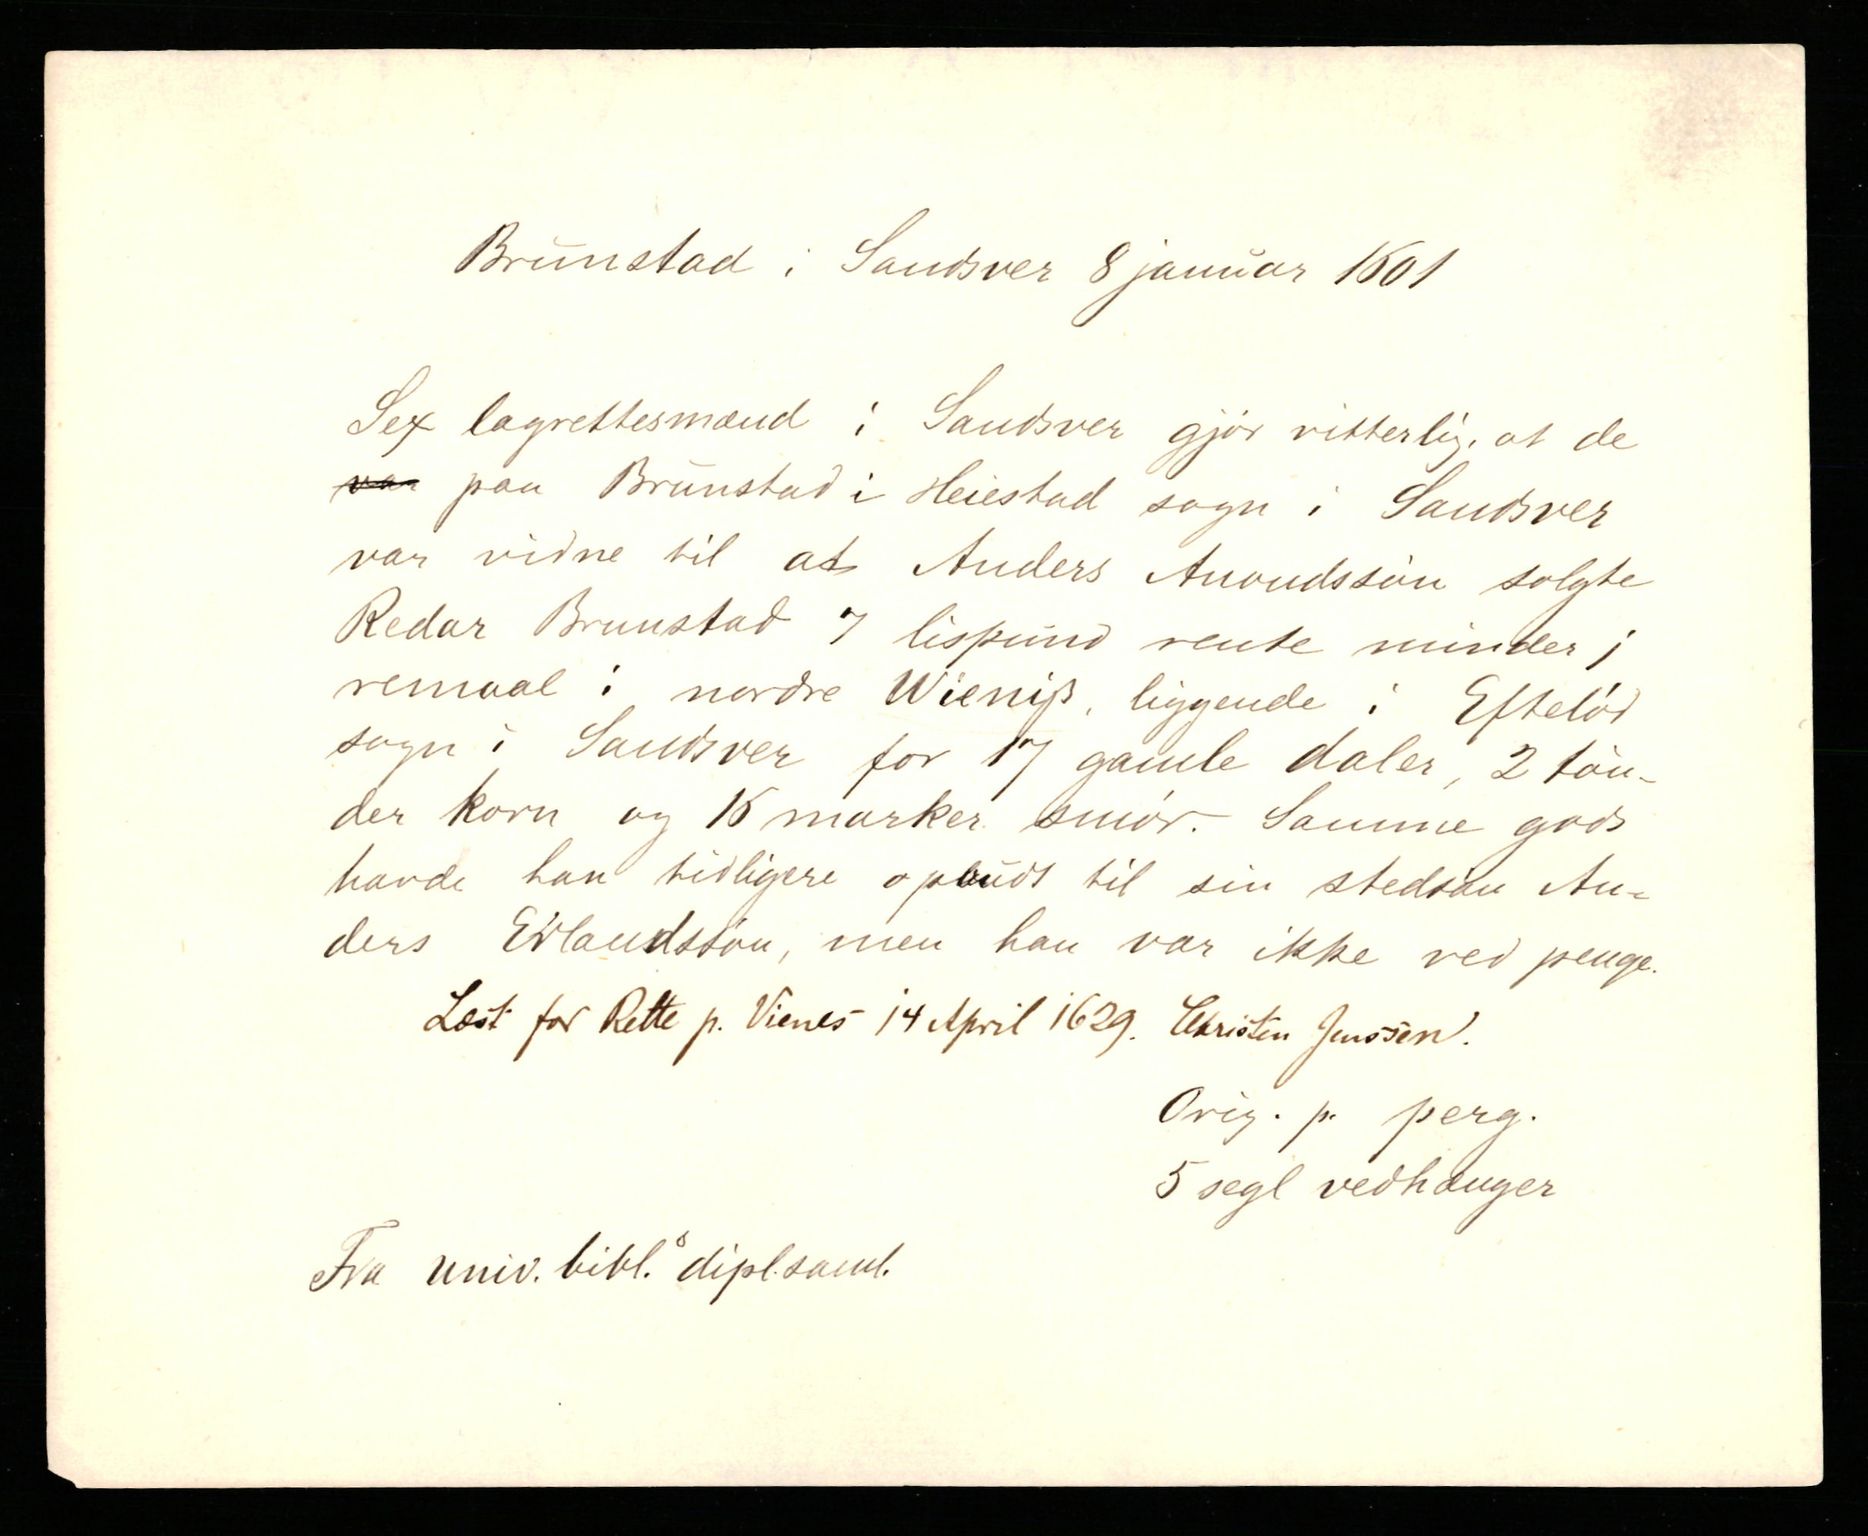 Brunstad i Sandsver 8 januar 1601
Sex lagrettesmænd i Sandsver gjör vitterlig, at de
var paa Brunstad i Heiestad sogn i Sandsver
var vidne til at Anders Anoundssön solgte
Redar Brunstad 7 lispund rente minder j
remaal i nordre Wieniß, liggende i Efteløđ
sogn i Sandsver for 17 gamle daler, 2 tön-
der korn og 16 marker smör. Samme gods
havde han tidligere opbudt til sin stedsön An-
ders Erlandssön, men han var ikke ved penge.
Læst for Rette p. Vienes 14 April 1629. Christen Jenssen.
Orig. p. perg.
5 segl vedhænger
Fra univ. bibl.s dipl.saml.